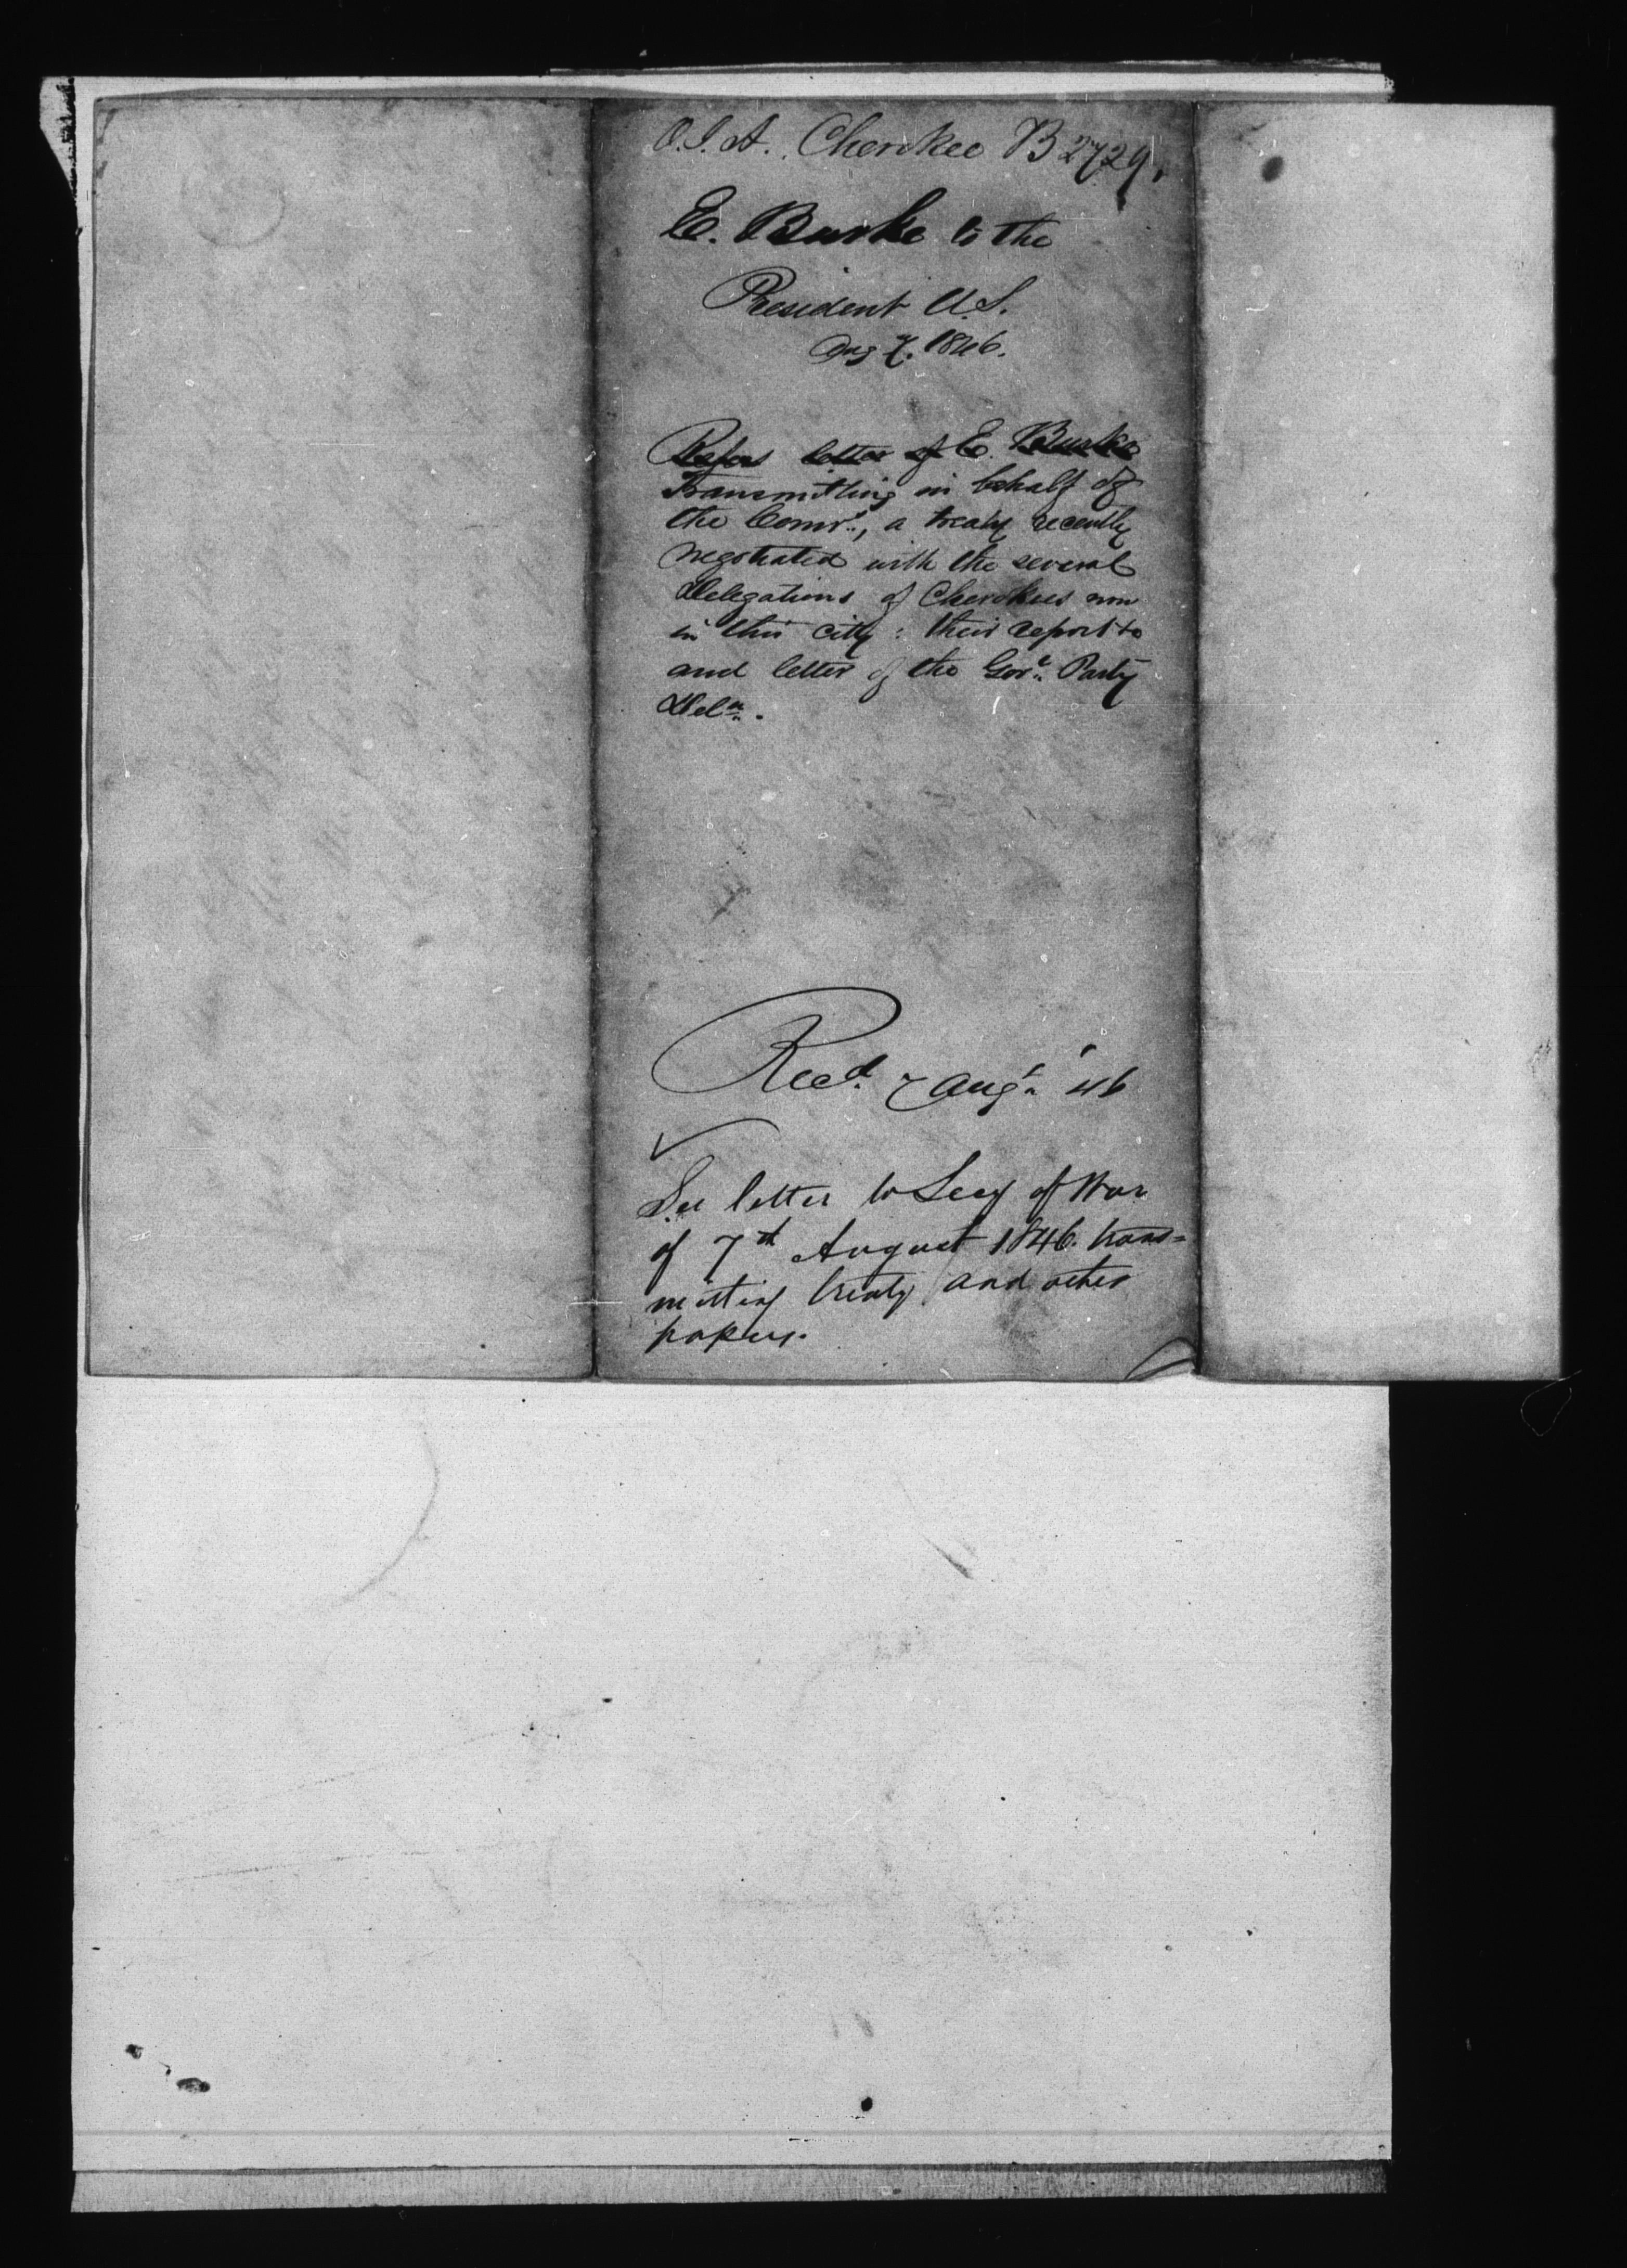 O.I.A. Cherokee B 2729.
E. Burke to the
President U.S.
Aug 7. 1846.
Refers letter of E. Burke
Transmitting in behalf of
the Comrs., a treaty recently
negotiated with the several
Delegations of Cherokees now
in this city : their report to
and letter of the Govt. Party
Deln.
Recd. 7 Augt. '46
See letter to Secy of War
of 7th August 1846. trans=
mitting treaty and other
papers.